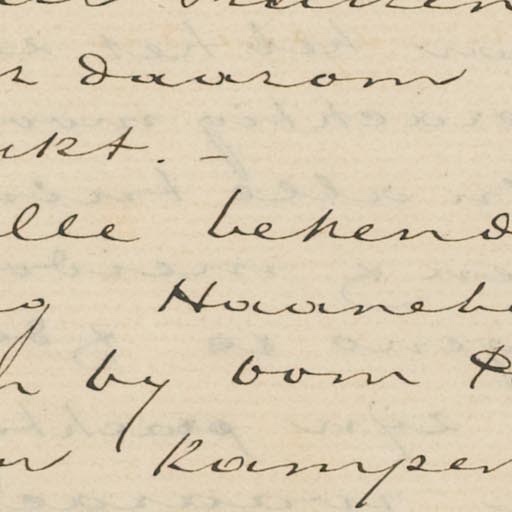 daarom
ukt. -
lle bekend
Haaneb
by oom
Kamper